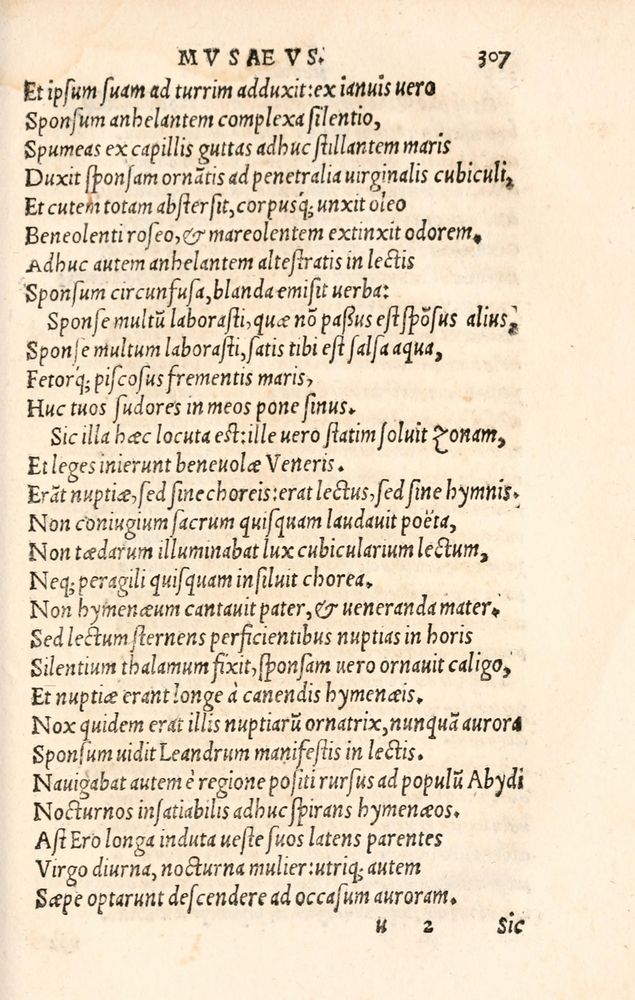 MVSAEVS. 307
Et ipsum suam ad turrim adduxit: ex ianuis uero
Sponsum anhelantem complexa silentio,
Spumeas ex capillis guttas adhuc stillantem maris
Duxit spōsam ornātis ad penetralia uirginalis cubiculi,
Et cutem totam abstersit, corpusq; unxit oleo
Beneolenti roseo, & mareolentem extinxit odorem.
Adhuc autem anhelantem altestratis in lectis
Sponsum circunfusa, blanda emisit uerba:
Sponse multū laborasti, quæ nō paßus est spōsus alius,
Sponse multum laborasti, satis tibi est salsa aqua,
Fetorq; piscosus frementis maris,
Huc tuos sudores in meos pone sinus.
Sic illa hæc locuta est: ille uero statim soluit zonam,
Et leges inierunt beneuolæ Veneris.
Erāt nuptiæ, sed sine choreis: erat lectus, sed sine hymnis.
Non coniugium sacrum quisquam laudauit poëta,
Non tædarum illuminabat lux cubicularium lectum,
Neq; peragili quisquam insiluit chorea.
Non hymenæum cantauit pater, & ueneranda mater.
Sed lectum sternens perficientibus nuptias in horis
Silentium thalamum fixit, sponsam uero ornauit caligo,
Et nuptiæ erant longe à canendis hymenæis.
Nox quidem erat illis nuptiarū ornatrix, nunquā aurora
Sponsum uidit Leandrum manifestis in lectis.
Nauigabat autem è regione positi rursus ad populū Abydi
Nocturnos insatiabilis adhuc spirans hymenæos.
Ast Ero longa induta ueste suos latens parentes
Virgo diurna, nocturna mulier: utriq; autem
Sæpe optarunt descendere ad occasum auroram.
u 2 Sic